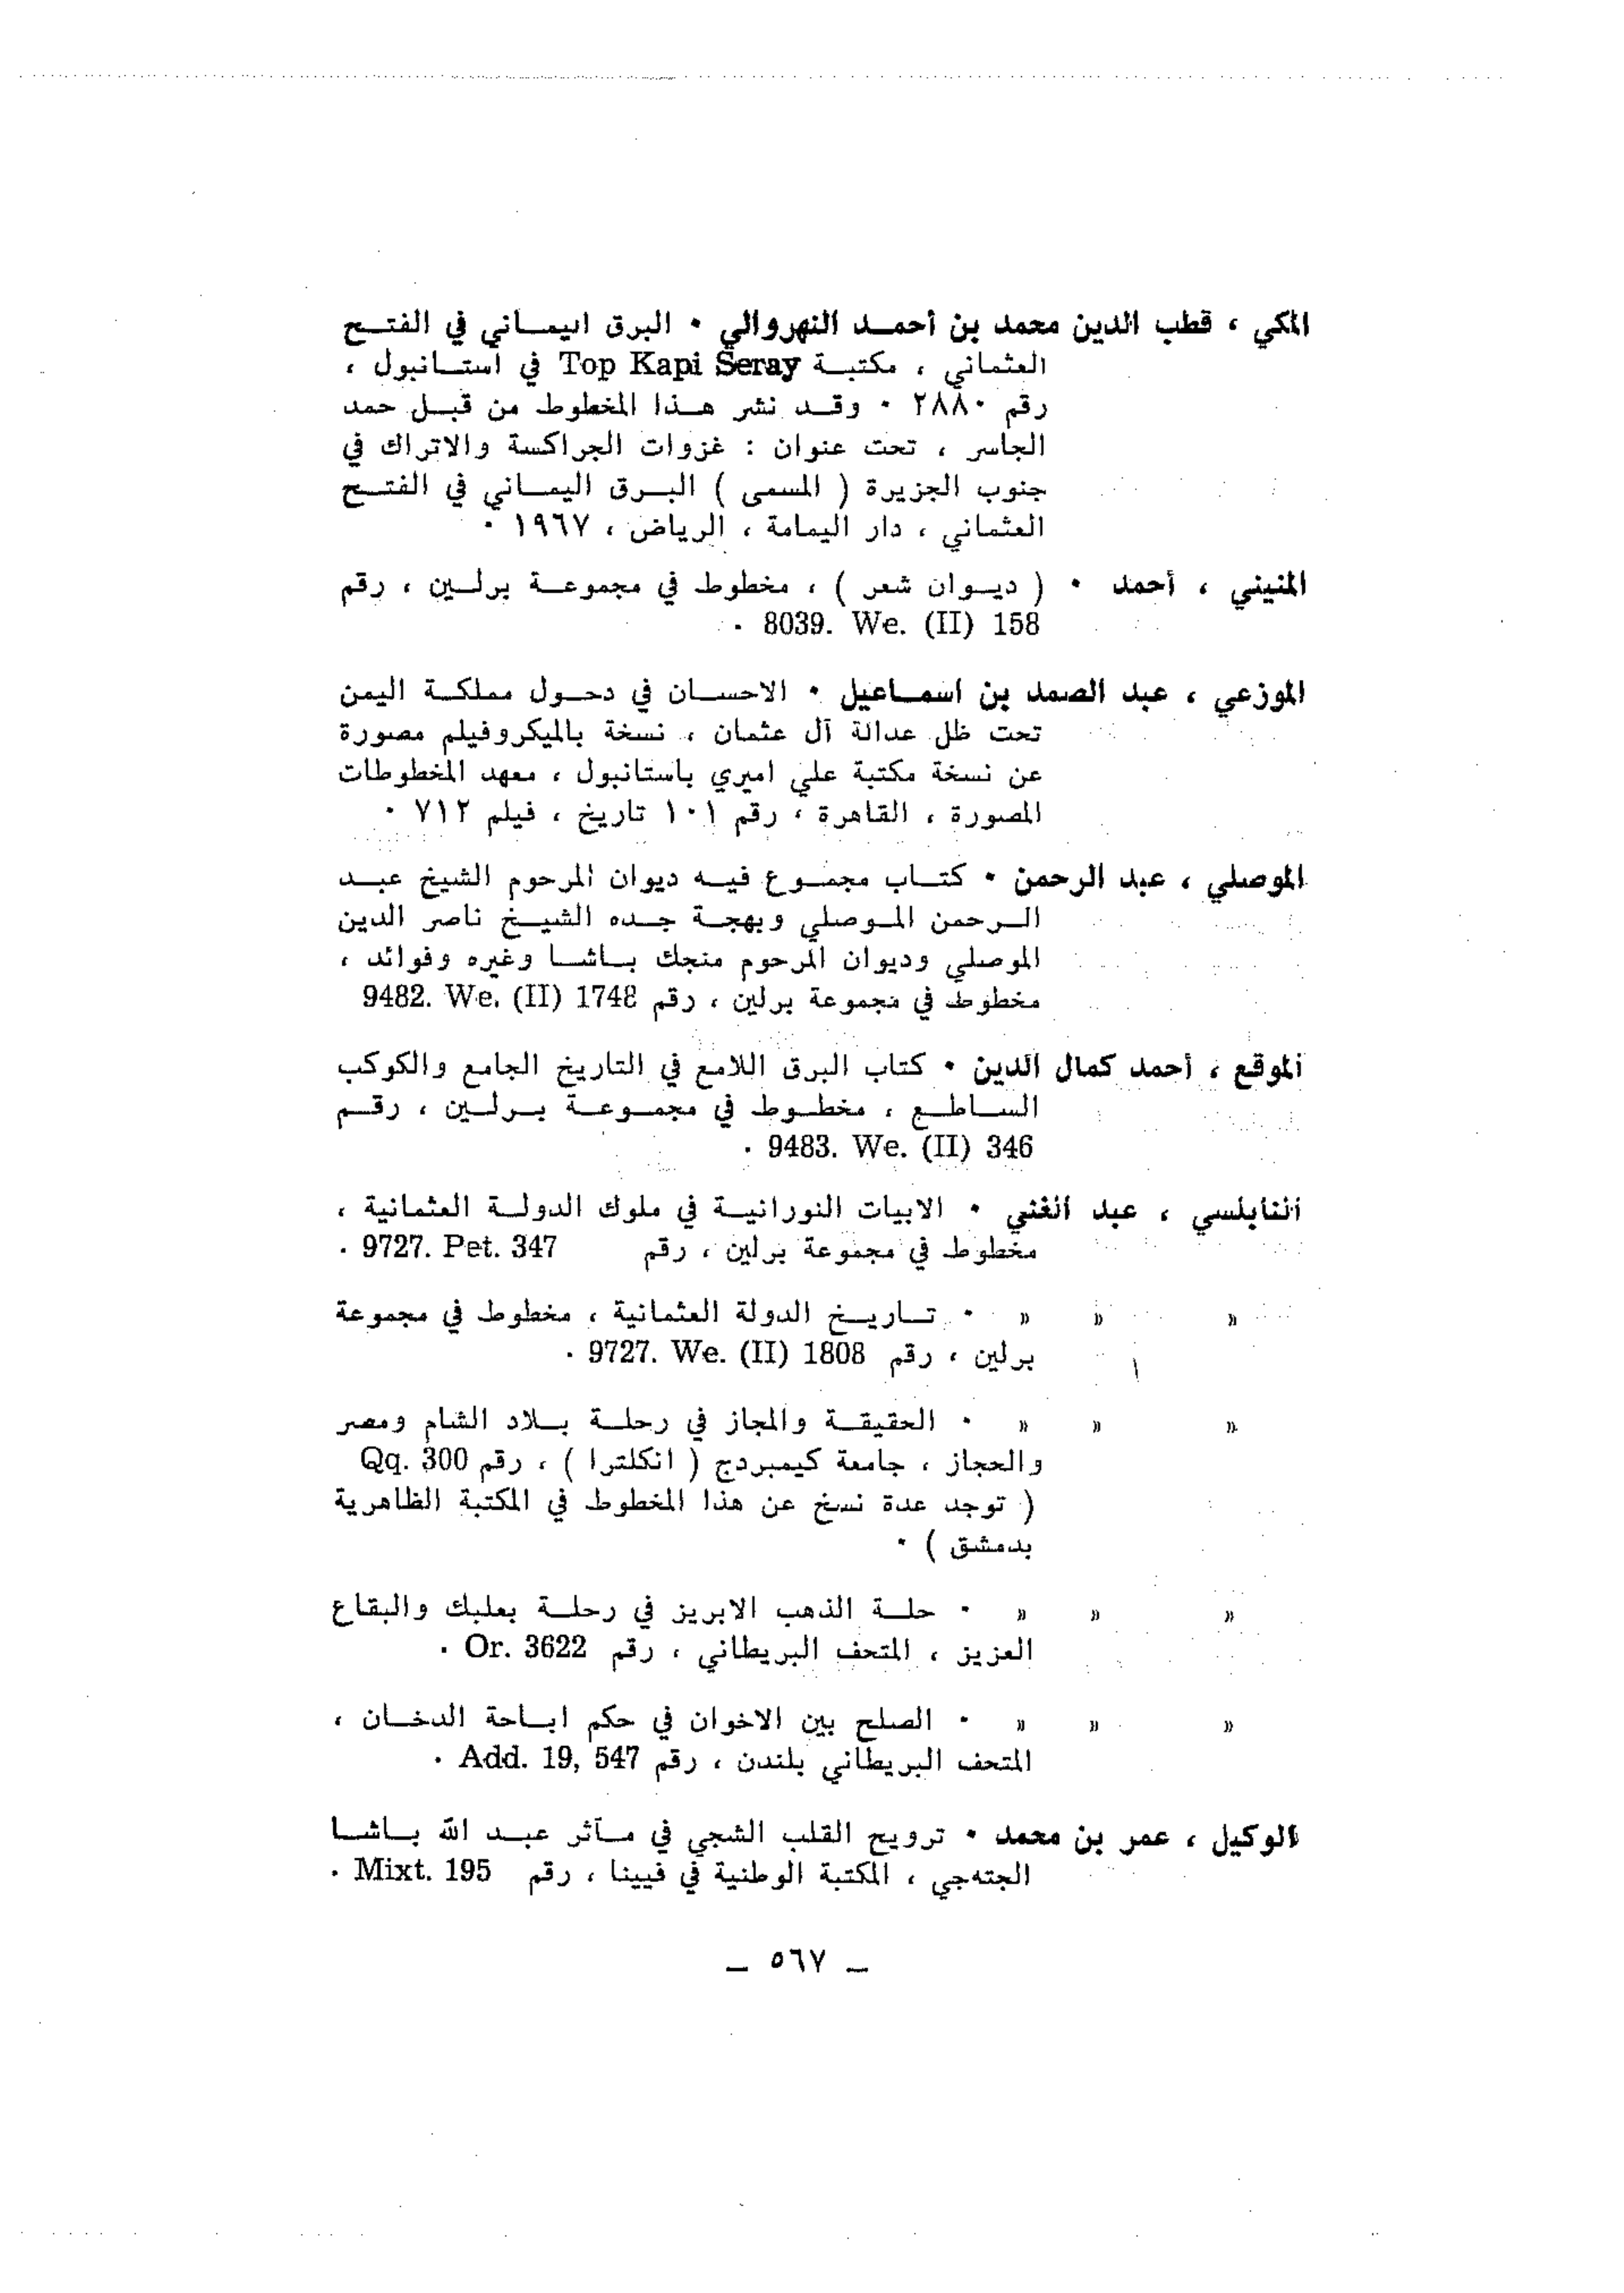 المكي ، قطب الدين محمد بن أحمـد النهروالي • البرق اليمـاني في الفتـح
العثماني ، مكتبـة Top Kapi Seray في استـانبول ،
رقم ٢٨٨٠ • وقـد نشر هـذا المخطوط من قبـل حمد
الجاسر ، تحت عنوان : غزوات الجراكسة والاتراك في
جنوب الجزيرة ( المسمى ) البـرق اليمـاني في الفتـح
العثماني ، دار اليمامة ، الرياض ، ١٩٦٧ •
المنيني ، أحمد • ( ديـوان شعر ) ، مخطوط في مجموعـة برلـين ، رقم
8039. We. (II) 158 •
الموزعي ، عبد الصمد بن اسمـاعيل • الاحسـان في دحـول مملكـة اليمن
تحت ظل عدالة آل عثمان ، نسخة بالميكروفيلم مصورة
عن نسخة مكتبة علي اميري باستانبول ، معهد المخطوطات
المصورة ، القاهرة ، رقم ١٠١ تاريخ ، فيلم ٧١٢ •
الموصلي ، عبد الرحمن • كتـاب مجمـوع فيـه ديوان المرحوم الشيخ عبـد
الـرحمن المـوصلي وبهجـة جـده الشيـخ ناصر الدين
الموصلي وديوان المرحوم منجك بـاشـا وغيره وفوائد ،
مخطوط في مجموعة برلين ، رقم 9482. We. (II) 1748
الموقع ، أحمد كمال الدين • كتاب البرق اللامع في التاريخ الجامع والكوكب
السـاطـع ، مخطـوط في مجمـوعـة بـرلـين ، رقـم
9483. We. (II) 346 •
النابلسي ، عبد الغني • الابيات النورانيـة في ملوك الدولـة العثمانية ،
مخطوط في مجموعة برلين ، رقم 9727. Pet. 347 •
» » » • تـاريـخ الدولة العثمانية ، مخطوط في مجموعة
برلين ، رقم 9727. We. (II) 1808 •
» » » • الحقيقـة والمجاز في رحلـة بـلاد الشام ومصر
والحجاز ، جامعة كيمبردج ( انكلترا ) ، رقم Qq. 300
( توجد عدة نسخ عن هذا المخطوط في المكتبة الظاهرية
بدمشق ) •
» » » • حلـة الذهب الابريز في رحلـة بعلبك والبقاع
العزيز ، المتحف البريطاني ، رقم Or. 3622 •
» » » • الصلح بين الاخوان في حكم ابـاحة الدخـان ،
المتحف البريطاني بلندن ، رقم Add. 19, 547 •
الوكيل ، عمر بن محمد • ترويح القلب الشجي في مـآثر عبـد الله بـاشـا
الجته‌جي ، المكتبة الوطنية في فيينا ، رقم Mixt. 195 •
– ٥٦٧ –